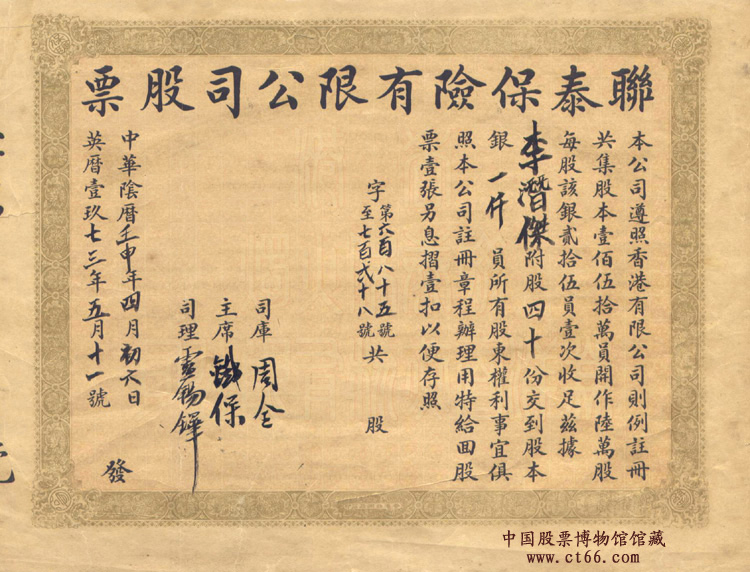 聯泰保險有限公司股票
本公司遵照香港有限公司則例註冊
共集股本壹佰伍拾萬員開作陸萬股
每股該銀貳拾伍員壹次收足茲據
李潛傑附股四十份交到股本
銀一仟員所有股東權利事宜俱
照本公司註冊章程辦理用特給回股
票壹張另息摺壹扣以便存照
字第六百八十五號
至七百弍十八號共股
司庫周全
主席鐵保
司理
中華陰曆壬申年四月初六日
英曆壹玖七三年五月十一號
發
中国股票博物馆馆藏
www.ct66.com